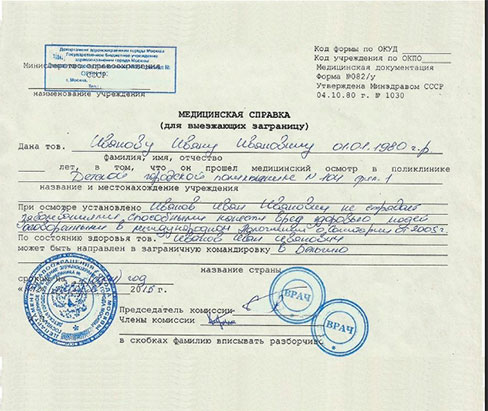 Департамент здравоохранения города Москвы
Государственное бюджетное учреждение
здравоохранения города Москвы
г. Москва,
Министерство здравоохранения
СССР
наименование учреждения
Код формы по ОКУД
Код учреждения по ОКПО
Медицинская документация
Форма №082/у
Утверждена Минздравом СССР
04.10.80 г. № 1030
МЕДИЦИНСКАЯ СПРАВКА
(для выезжающих заграницу)
Дана тов. Иванову Ивану Ивановичу 01.01.1980 г.р
фамилия, имя, отчество
лет, в том, что он прошел медицинский осмотр в поликлинике
Детской городской поликлинике N 104
название и местонахождение учреждения
При осмотре установлено Иванов Иван Иванович не страдает
заболеваниями, способными нанести вред здоровью людей
в международном 2005г.
По состоянию здоровья тов. Иванов Иван Иванович
может быть направлен в заграничную командировку в
название страны
сроком на год
Председатель комиссии
Члены комиссии
в скобках фамилию вписывать разборчиво
ВРАЧ
ВРАЧ